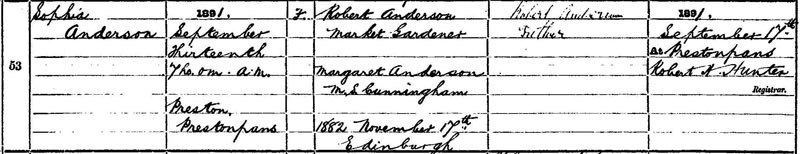 53
Sophia
Anderson
1891.
September
Thirteenth
7ho. 0m. A.M.
Preston,
Prestonpans
F.
Robert Anderson
Market Gardener
Margaret Anderson
M.S. Cunningham
1882 November 17th
Edinburgh
Robert Anderson
Father
1891.
September 17th
At Prestonpans
Robert N. Hunter
Registrar.